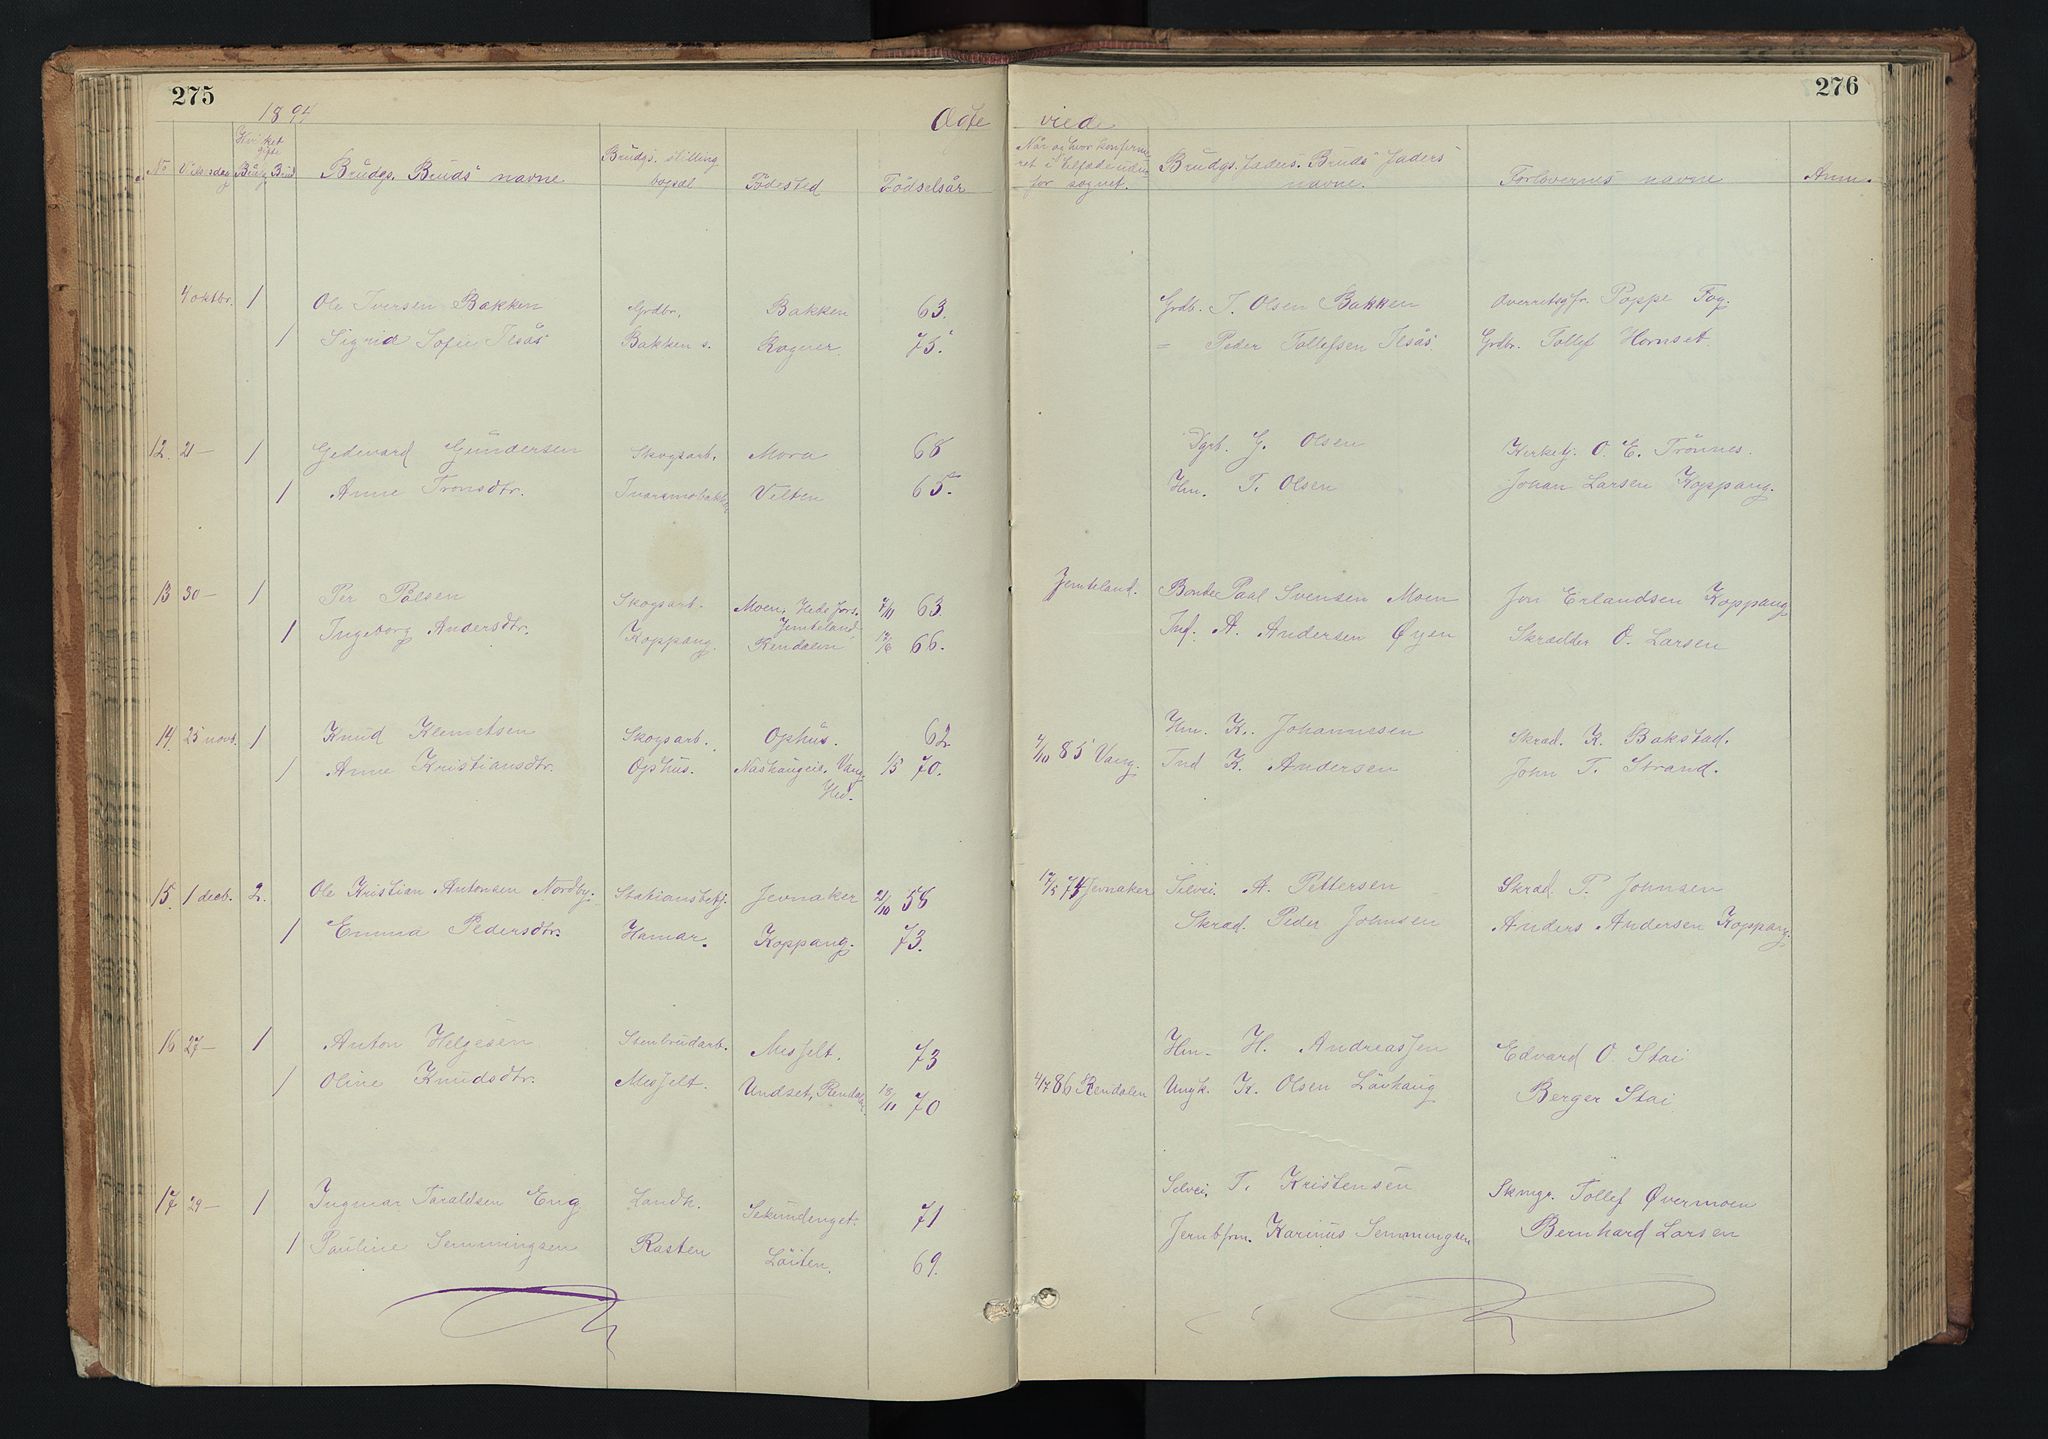 275
276
1894
Ægte viede
No Vielsesdag Hvilket gifte Brudg. Brud Brudgs. Bruds navne Brudgs. stilling bopæl Födested Födselsår Når og hvor konfirmeret i tilfælde udenfor sognet. Brudgs. faders. Bruds faders navne. Forlovernes navne Anm.
4 oktbr. 1 Ole Iversen Bakken Grdbr. Bakken 63. Grdb. I. Olsen Bakken Overretsagfr. Poppe Fog.
1 Sigrid Sofie Ilsås Bakken s. Kogner 75. = Peder Tollefsen Ilsås Grdbr. Tollef Hornset.
12. 21 — 1 Gedevard Gundersen Skogsarb. Mora 68 G. Olsen Kirketj. O. E. Trönnes.
1 Anne Tronsdtr. Ivarsmobakken Velten 65. Hm. T. Olsen Johan Larsen Koppang.
13 30 — 1 Per Pålsen Skogsarb. Moen, Hede Fors. Jemteland 7/11 63 Jemteland. Bonde Paal Svensen Moen Jon Erlandsen Koppang
1 Ingeborg Andersdtr. Koppang. Rendalen 66. Ind. A. Andersen Øyen Skrædder O. Larsen
14. 25 novb. 1 Knud Klemetsen Skogsarb. Ophus. 62 Hm. K. Johannesen Skræd. K. Bakstad.
1 Anne Kristiansdtr. Ophus. Naskaugeie, Vang Hed. 1/5 70. 85 Vang. Ind K. Andersen John T. Strand.
15. 1 decb. 2. Ole Kristian Antonsen Nordby. Stationsbetj. Jevnaker 21/10 58 17/5 74 Jevnaker Selvei. A. Pettersen Skræd. P. Johnsen
1 Emma Pedersdtr. Hamar. Koppang. 73. Skræd. Peder Johnsen Anders Andersen Koppang.
16 27 — 1 Anton Helgesen Stenbrudarb. Mesjelt. 73 Hm. H. Andreassen Edvard O. Stai
1 Oline Knudsdtr. Mesjelt. Undset, Rendalen. 18/11 70 4/7 86 Rendalen Ungk. K. Olsen Lövhaug Berger Stai
17 29 — 1 Ingmar Taraldsen Eng Landh. Sekundenget. 71 Selvei. T. Kristensen Skmgr. Tollef Øvermoen
1 Pauline Semmingsen Rasten Löiten. 69. Jernbfrm. Karinus Semmingsen Bernhard Larsen